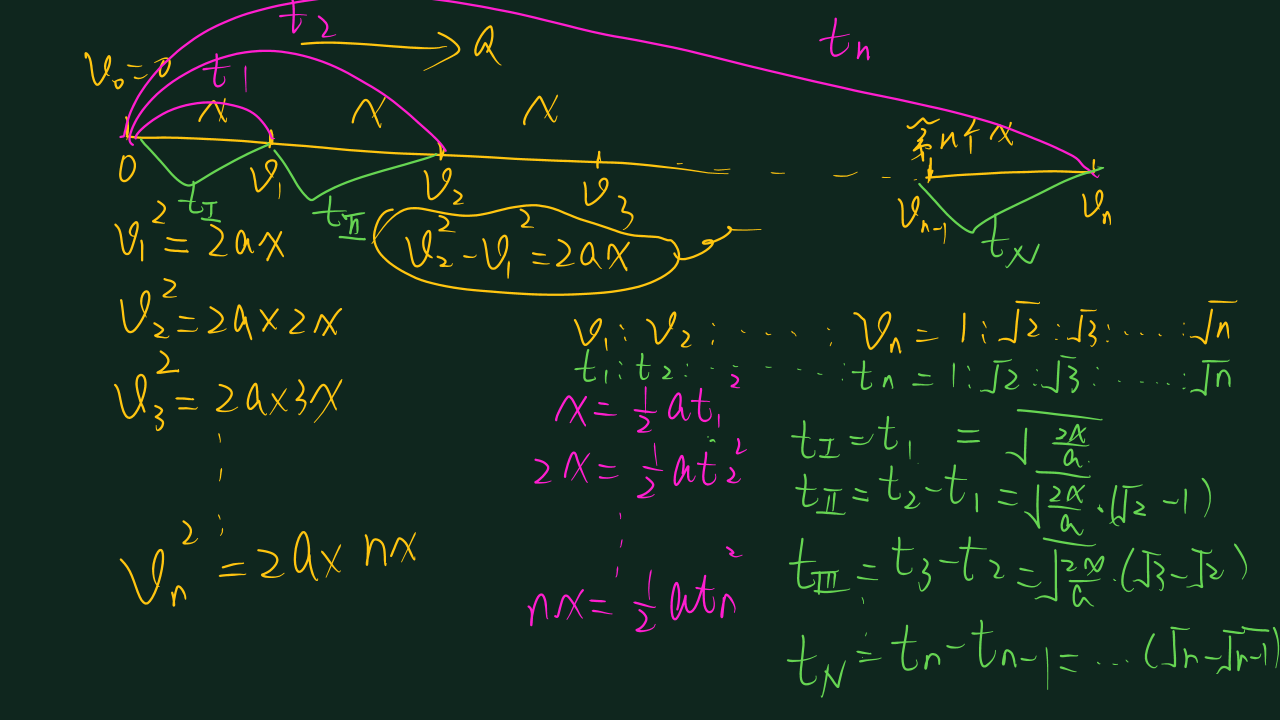 t₂ → a
tₙ
v₀=0 t₁
x x x 第n个x
0 v₁ v₂ v₃ - - - - vₙ₋₁ vₙ
t_I t_II t_N
v₁² = 2ax v₂² - v₁² = 2ax
v₂² = 2a×2x
v₃² = 2a×3x
⋮
vₙ² = 2a×nx
v₁ : v₂ : ····· : vₙ = 1 : √2 : √3 : ····· : √n
t₁ : t₂ : ····· : tₙ = 1 : √2 : √3 : ····· : √n
x = ½at₁²
2x = ½at₂²
⋮
nx = ½atₙ²
t_I = t₁ = √(2x/a)
t_II = t₂-t₁ = √(2x/a)·(√2-1)
t_III = t₃-t₂ = √(2x/a)·(√3-√2)
⋮
t_N = tₙ-tₙ₋₁ = ···(√n-√(n-1))